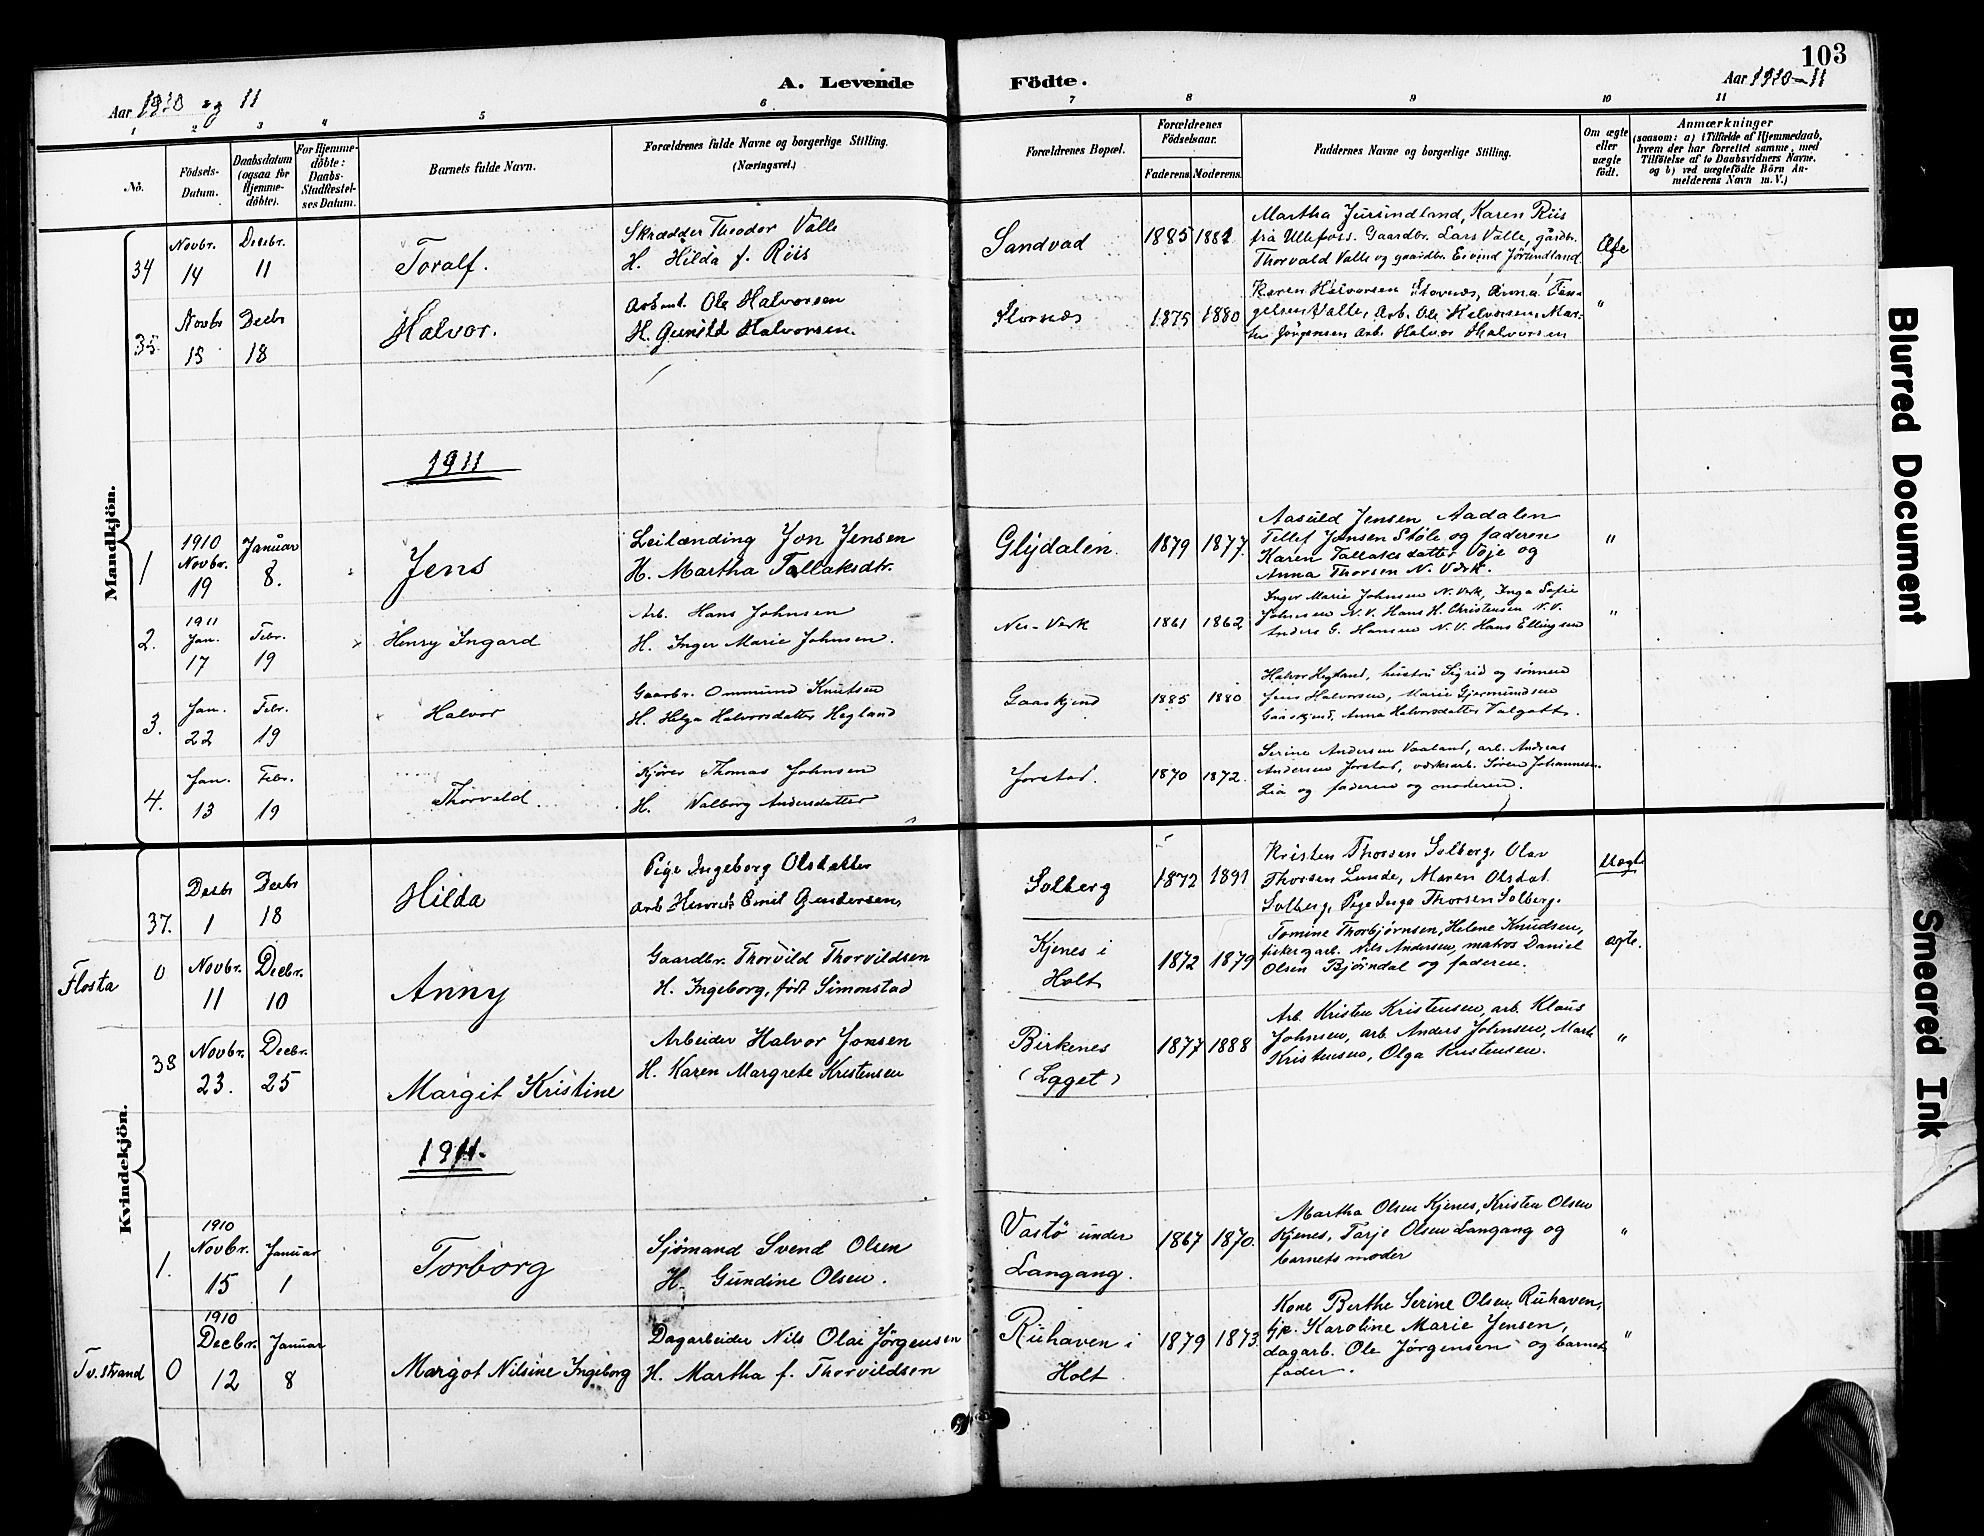 103
A. Levende Födte.
Aar 1910 og 11
Aar 1910-11
1 2 3 4 5 6 7 8 9 10 11
No.
Födsels-Datum.
Daabsdatum (ogsaa for Hjemme-döbte).
For Hjemme-döbte: Daabs-Stadfæstel-ses Datum.
Barnets fulde Navn.
Forældrenes fulde Navne og borgerlige Stilling.
(Næringsvei.)
Forældrenes Bopæl.
Forældrenes Födselsaar.
Faderens Moderens.
Faddernes Navne og borgerlige Stilling.
Om ægte eller uægte födt.
Anmærkninger
(saasom: a) i Tilfælde af Hjemmedaab,
hvem der har forrettet samme, med
Tilföielse af to Daabsvidners Navne,
og b) ved uægtefödte Börn An-
melderens Navn m. V.)
Mandkjön.
34 Novbr. 14 Decbr. 11
Toralf.
Skrædder Theodor Valle
H. Hilda f. Riis
Sandvad
1885
Martha Jurundland, Karen Riis
fra Ullefoss. Gaardbr. Lars Valle, gårdbr.
Thorvald Valle og gaardbr. Eivind Jörundland
35. Novbr 15 Decbr 18
Halvor.
Ole Halvorsen
H. Gunild Halvorsen.
1875 1880
Karen Halvorsen
Valle, Arb. Ole Halvorsen,
Jörgensen, Arb. Halvor Halvorsen
"
1911
1 1910 Novbr. 19 Januar 8.
Jens
Leilænding Jon Jensen
H. Martha Tallaksdtr.
Glydalen.
1879 1877.
Aasuld Jensen Aadalen
Tellef Jensen Støle og faderen
Karen Tallaksdatter Voje og
Anna Thorsen N. Værk.
"
2. 1911 Jan. 17 Febr. 19
Henry Ingard
Arb. Hans Johnsen
H. Inger Marie Johnsen.
Nes-Værk
1861 1862
Inger Marie Johnsen N. Værk, Inga Sofie
Johnsen N.V. Hans H. Christensen N.V.
Anders G. Hansen N.V. Hans Ellingsen
"
3. Jan. 22 Febr. 19
Halvor
Gaardbr. Ommund Knutsen
H. Helga Halvorsdatter Hegland
Gaaskjend
1885 1880
Halvor Hegland, hustru Sigrid og sønnen
Jens Halvorsen, Marie Gjermundsen
Gaaskjend, Anna Halvorsdatter
4. Jan. 13 Febr. 19
Thorvald.
Kjører Thomas Johnsen
H. Valborg Andersdatter
Jorstad.
1870 1872.
Serine Andersen Vaaland, arb. Andreas
Andersen Jorstad, værksarb. Søren Johannesen
Lia og faderen og moderen.
Kvindekjön.
37. Decbr 1 Decbr 18
Hilda
Pige Ingeborg Olsdatter
Arb Henrik Emil Gundersen,
Solberg
1872 1891
Kristen Thorsen Solberg, Olav
Thorsen Lunde, Maren Olsdat.
Solberg, Pige Inga Thorsen Solberg.
Uægte
Flosta 0 Novbr. 11 Decbr. 10
Anny
Gaardbr. Thorvild Thorvildsen
H. Ingeborg, født Simonstad
Kjenes i
Holt
1872 1879
Tomine Thorbjørnsen, Helene Knudsen,
Nils Andersen, matros Daniel
Olsen Bjørndal og faderen.
ægte.
38 Novbr. 23. Decbr. 25
Margit Kristine
Arbeider Halvor Jonsen
H. Karen Margrete Kristensen
Birkenes
(Laget)
1877 1888
Arb. Kristen Kristensen, arb. Klaus
Johnsen, arb. Anders Johnsen,
Kristensen, Olga Kristensen.
"
1911.
1. 1910 Novbr. 15 Januar 1
Torborg
Sjömand Svend Olsen
H. Gundine Olsen.
Vastö under
Langang.
1867 1870.
Martha Olsen Kjenes, Kristen Olsen
Kjenes, Tarje Olsen Langang og
barnets moder
"
Tv.strand 0 1910 Decbr. 12 Januar 8
Margot Nilsine Ingeborg
Dagarbeider Nils Olai Jørgensen
H. Martha f. Thorvildsen
Ruhaven i
Holt
1879 1873.
Kone Berthe Serine Olsen, Ruhaven,
Gp. Karoline Marie Jensen,
dagarb. Ole Jørgensen og barnets
fader.
"
Blurred Document
Smeared Ink